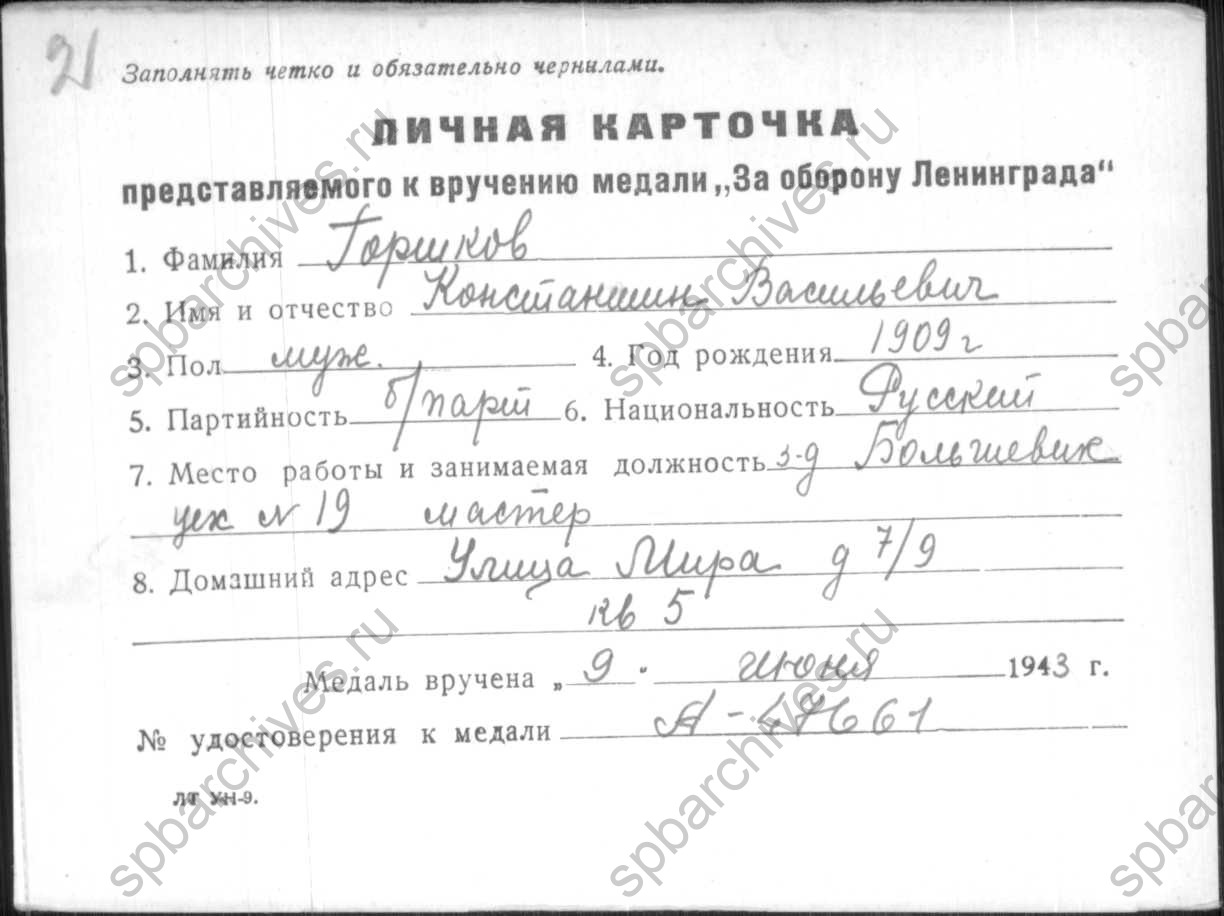 21
Заполнять четко и обязательно чернилами.
ЛИЧНАЯ КАРТОЧКА
представляемого к вручению медали „За оборону Ленинграда“
1. Фамилия Горшков
2. Имя и отчество Константин Васильевич
3. Пол муж. 4. Год рождения 1909 г
5. Партийность б/парт 6. Национальность Русский
7. Место работы и занимаемая должность з-д Большевик
цех N 19 мастер
8. Домашний адрес Улица Мира д 7/9
кв 5
Медаль вручена „9" июня 1943 г.
№ удостоверения к медали А-47661
ЛТ УН-9.
spbarchives.ru
spbarchives.ru
spbarchives.ru
spbarchives.ru